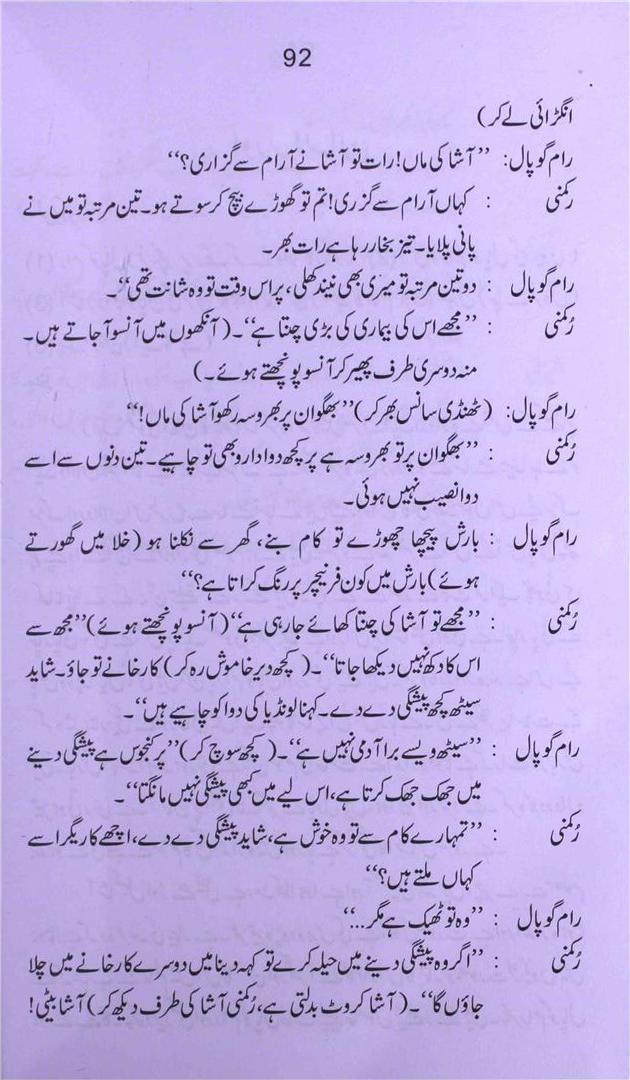 92
انگڑائی لے کر)
رام گوپال: ”آشا کی ماں! رات تو آشا نے آرام سے گزاری؟“
رکمنی : کہاں آرام سے گزری! تم تو گھوڑے بیچ کر سوتے ہو۔ تین مرتبہ تو میں نے
پانی پلایا۔ تیز بخار رہا ہے رات بھر۔
رام گوپال : دو تین مرتبہ تو میری بھی نیند کھلی، پر اس وقت تو وہ شانت تھی“
رُکمنی : ”مجھے اس کی بیماری کی بڑی چنتا ہے“۔ (آنکھوں میں آنسو آ جاتے ہیں۔
منہ دوسری طرف پھیر کر آنسو پونچھتے ہوئے۔)
رام گوپال: (ٹھنڈی سانس بھر کر) ”بھگوان پر بھروسہ رکھو آشا کی ماں!“
رُکمنی : ”بھگوان پر تو بھروسہ ہے پر کچھ دوا دارو بھی تو چاہیے۔ تین دنوں سے اسے
دوا نصیب نہیں ہوئی۔
رام گوپال : بارش پیچھا چھوڑے تو کام بنے، گھر سے نکلنا ہو (خلا میں گھورتے
ہوئے) بارش میں کون فرنیچر پر رنگ کراتا ہے؟“
رُکمنی : ”مجھے تو آشا کی چنتا کھائے جا رہی ہے“ (آنسو پونچھتے ہوئے) ”مجھ سے
اس کا دکھ نہیں دیکھا جاتا“۔ (کچھ دیر خاموش رہ کر) کارخانے تو جاؤ۔ شاید
سیٹھ کچھ پیشگی دے دے۔ کہنا لونڈیا کی دوا کو چاہیے ہیں“۔
رام گوپال : ”سیٹھ ویسے برا آدمی نہیں ہے“۔ (کچھ سوچ کر) ”پر کنجوس ہے پیشگی دینے
میں جھک جھک کرتا ہے، اس لیے میں کبھی پیشگی نہیں مانگتا“۔
رُکمنی : ”تمہارے کام سے تو وہ خوش ہے، شاید پیشگی دے دے، اچھے کاریگر اسے
کہاں ملتے ہیں؟“
رام گوپال : ”وہ تو ٹھیک ہے مگر...“
رُکمنی : ”اگر وہ پیشگی دینے میں حیلہ کرے تو کہہ دینا میں دوسرے کارخانے میں چلا
جاؤں گا“۔ (آشا کروٹ بدلتی ہے، رُکمنی آشا کی طرف دیکھ کر) آشا بیٹی!